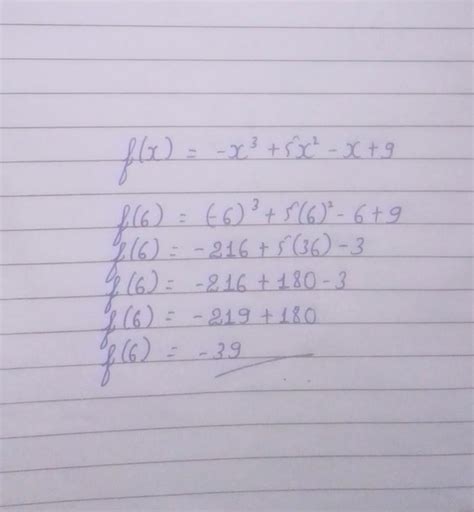 f(x) = -x³ + 5x² - x + 9
f(6) = (-6)³ + 5(6)² - 6 + 9
f(6) = -216 + 5(36) - 3
f(6) = -216 + 180 - 3
f(6) = -219 + 180
f(6) = -39